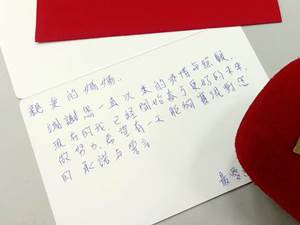 親愛的媽媽，
謝謝您一直以來的包容與照顧，
現在的我，已經開始為了更好的未來，
做努力，希望有一天能夠實現對您
的承諾與誓言
最愛